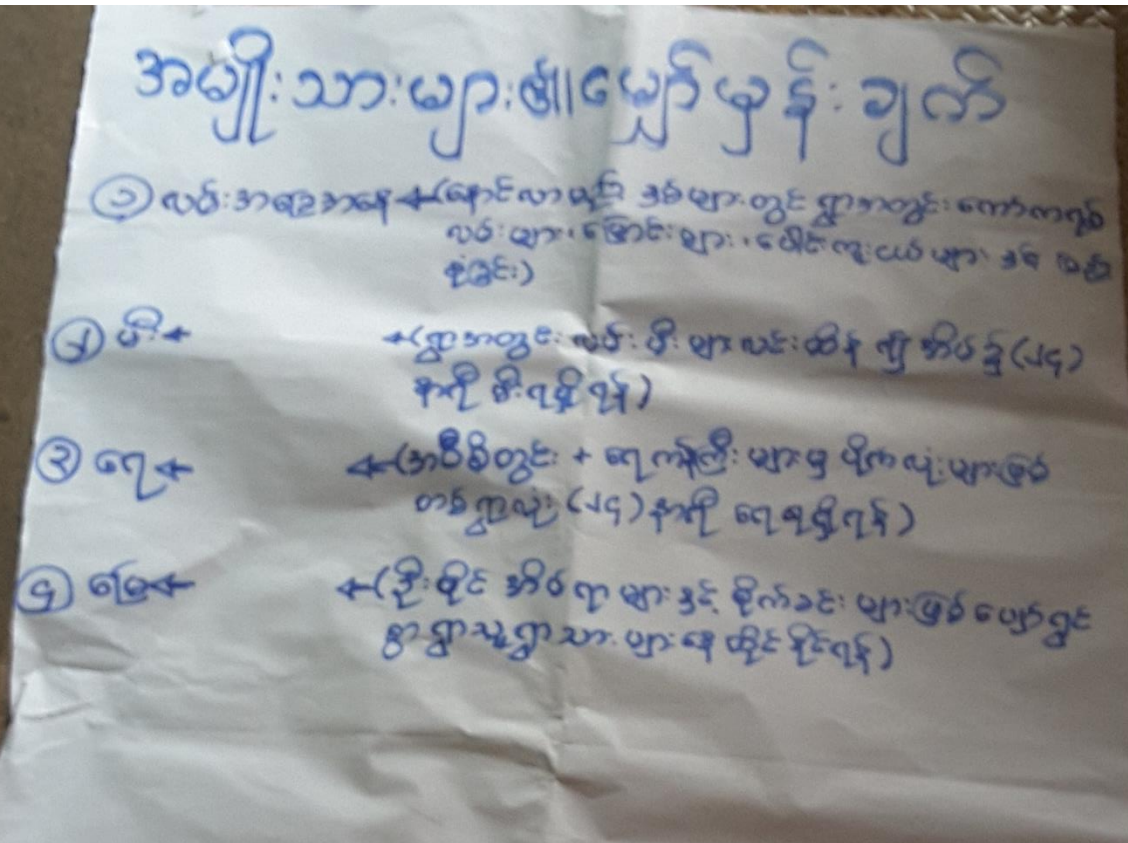 အမျိုးသားများ၏မျှော်မှန်းချက်
၁ လမ်းအခြေအနေ ←(နောင်လာမည့် နှစ်များတွင် ရွာအတွင်း ကော်ကရစ်
လမ်းများ၊ မြောင်းများ၊ ပေါင်းကူးငယ်များ နှင့် ပြည့်
စုံခြင်း)
၂ မီး← ←(ရွာအတွင်း လမ်းမီးများလင်းထိန် ၍ အိမ်၌ (၂၄)
နာရီ မီးရရှိရန်)
၃ ရေ← ←(အဝီစိတွင်း + ရေကန်ကြီးများမှ ပိုက်လုံးများဖြင့်
တစ်ရွာလုံး (၂၄) နာရီ ရေရရှိရန်)
၄ မြေ← ←(ဦးပိုင် အိမ်ရာများနှင့် စိုက်ခင်းများဖြင့် ပျော်ရွှင်
စွာ ရွာသူရွာသားများနေထိုင်နိုင်ရန်)